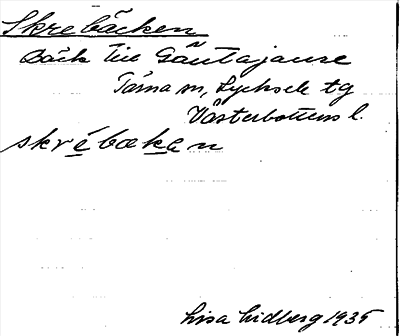 Skrebäcken
Bäck till Gäutajaure
Tärna sn, Lycksele tg
Västerbottens l.
skrébæken
Lisa Lidberg 1935